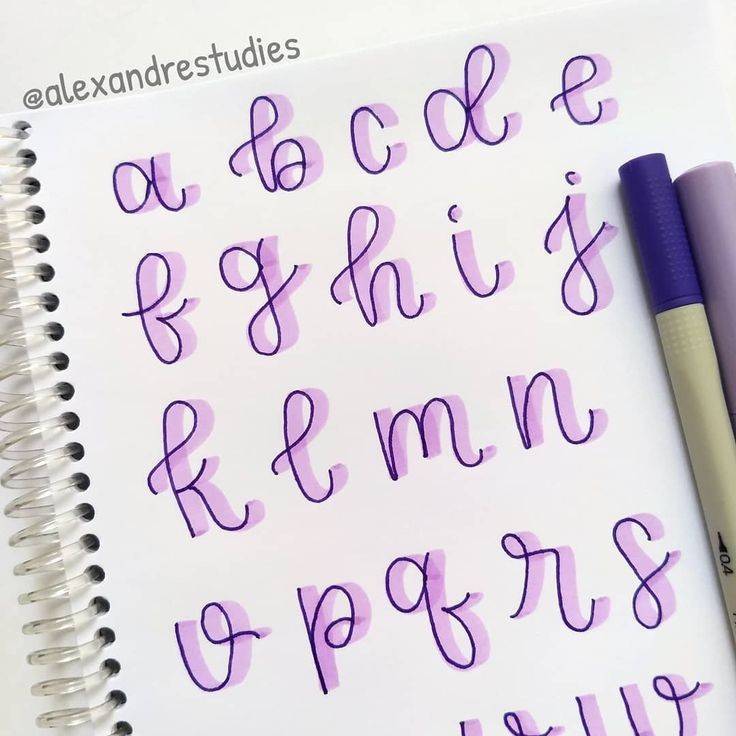 @alexandrestudies
a b c d e
f g h i j
k l m n
o p q r s
04